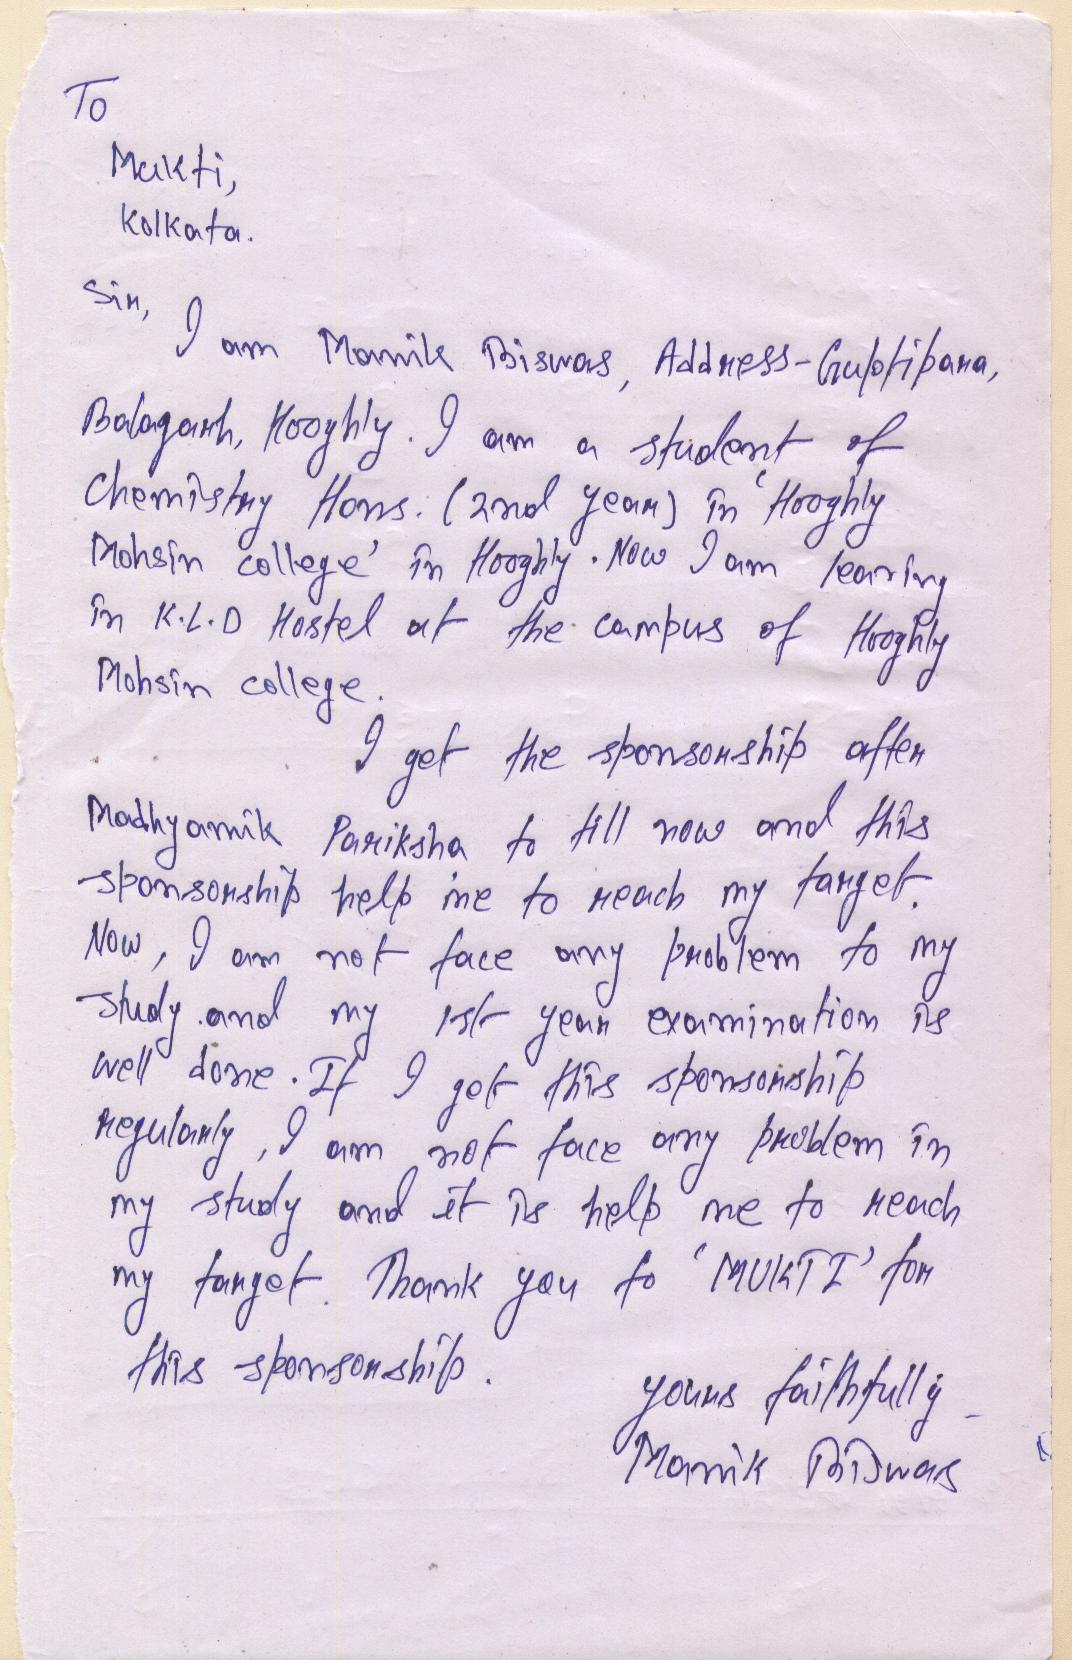 To
Mukti,
Kolkata.
Sir,
I am Manik Biswas, Address-Guptipara,
Balagarh, Hooghly. I am a student of
Chemistry Hons. (2nd year) in 'Hooghly
Mohsin college' in Hooghly. Now I am learing
in K.L.D Hostel at the campus of Hooghly
Mohsin college.
I get the sponsorship after
Madhyamik Pariksha to till now and this
sponsorship help me to reach my target.
Now, I am not face any problem to my
study and my 1st year examination is
well done. If I get this sponsorship
regularly, I am not face any problem in
my study and it is help me to reach
my target. Thank you to 'MUKTI' for
this sponsorship.
yours faithfully
Manik Biswas